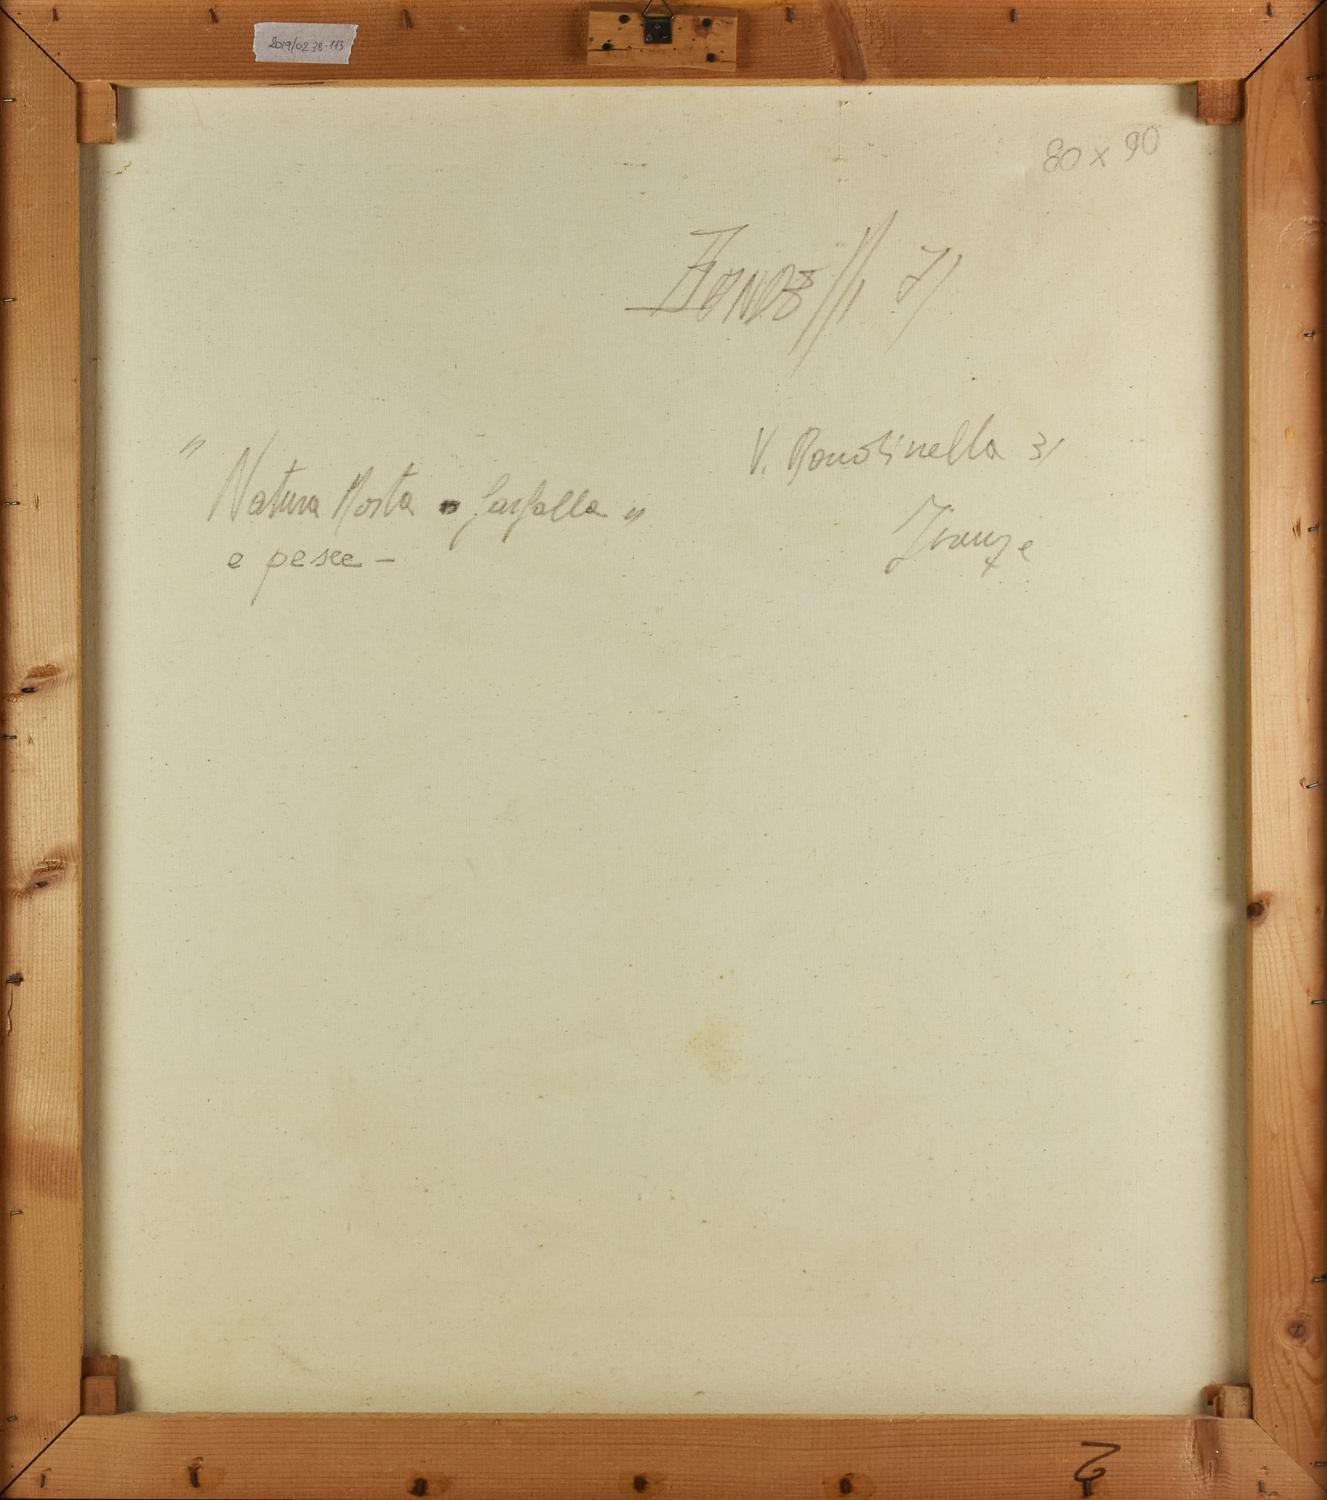 2019/0238-113
80 x 90
71
V. Rondinella 31
" Natura Morta farfalla "
e pesce -
Firenze
2